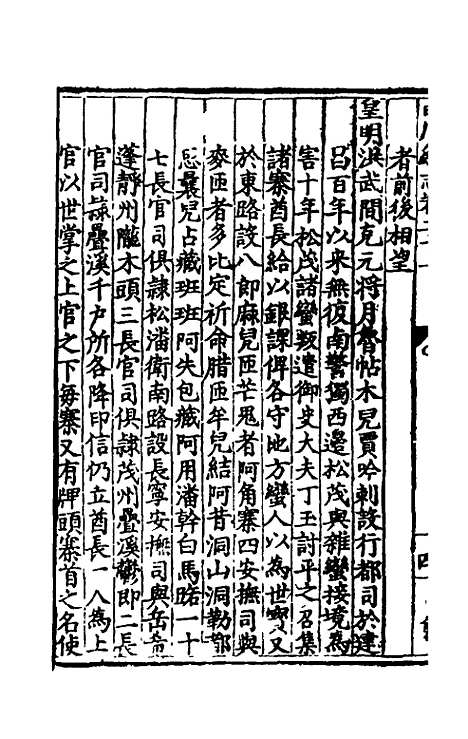 者前後相望
皇明洪武間克元將月魯帖木兒賈哈剌設行都司於建
昌百年以來無復南警獨西邊松茂與雜蠻接境為
害十年松茂諸蠻叛遣御史大夫丁玉討平之召集
諸寨酋長給以銀課俾各守地方蠻人以為世寶又
於東路設八郎麻兒匝芒兒者阿角寨四安撫司與
麥匝者多比定祈命腊匝牟兒結阿昔洞山洞勒都
思曩兒占藏班班阿失包藏阿用潘幹白馬路一十
七長官司俱隸松潘衛南路設長寧安撫司與岳希
蓬靜州隴木頭三長官司俱隸茂州疊溪鬱即二長
官司隸疊溪千户所各降印信仍立酋長一人為上
官以世掌之上官之下每寨又有牌頭寨首之名使